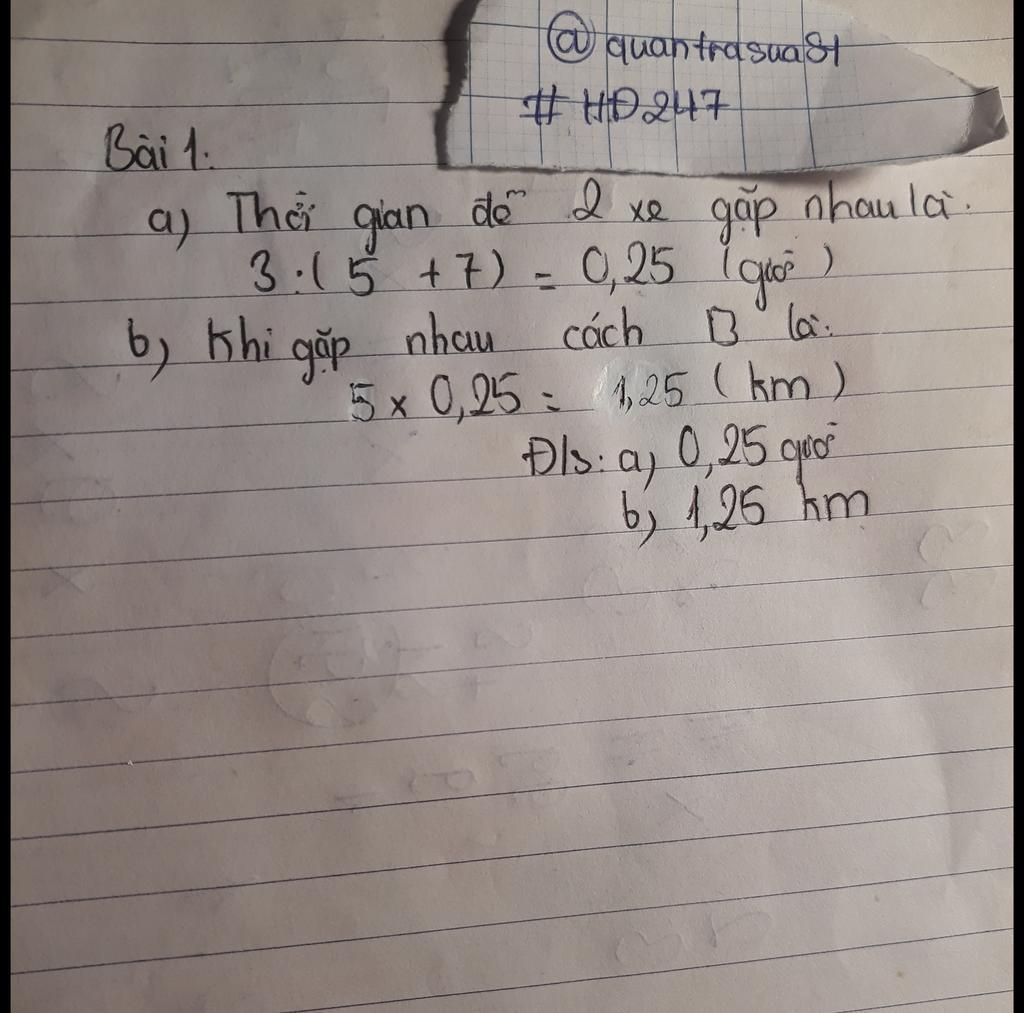 @quantrasua81
#HD247
Bài 1.
a) Thời gian để 2 xe gặp nhau là.
3:(5 + 7) = 0,25 (giờ)
b) Khi gặp nhau cách B là:
5 x 0,25 = 1,25 (km)
Đ/s: a) 0,25 giờ
b) 1,25 km